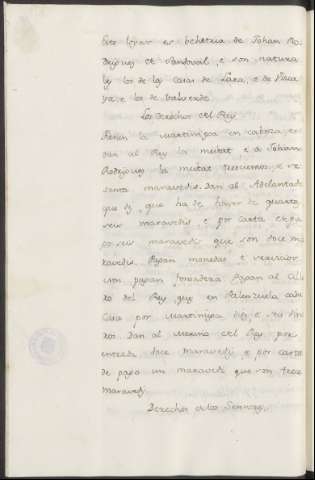 Este logar es behetria de Johan Ro
driguez de Sandoval, e son natura
les los de la Casa de Lara, e de Vizca
ya, e los de Valverde.
Los derechos del Rey
tienen la martiniega en cabeza, e
dan al Rey la meitat e a Johan
Rodriguez la meitat trecientos, e se
senta maravedis. Dan al Adelantado
que y, que ha de haver de quarta
seis maravedis e por carta de pa
go seis maravedis que son doce ma
ravedis. Pagan monedas e servicios
non pagan fonsadera pagan al
del Rey que en Palenzuela cada
Casa por martiniega diez e dine
ros. Dan al Merino del Rey por
entrada doce maravedis, e por carta
de pago un maravedi que son trece
maravedis.
Derechos de los Sennores,